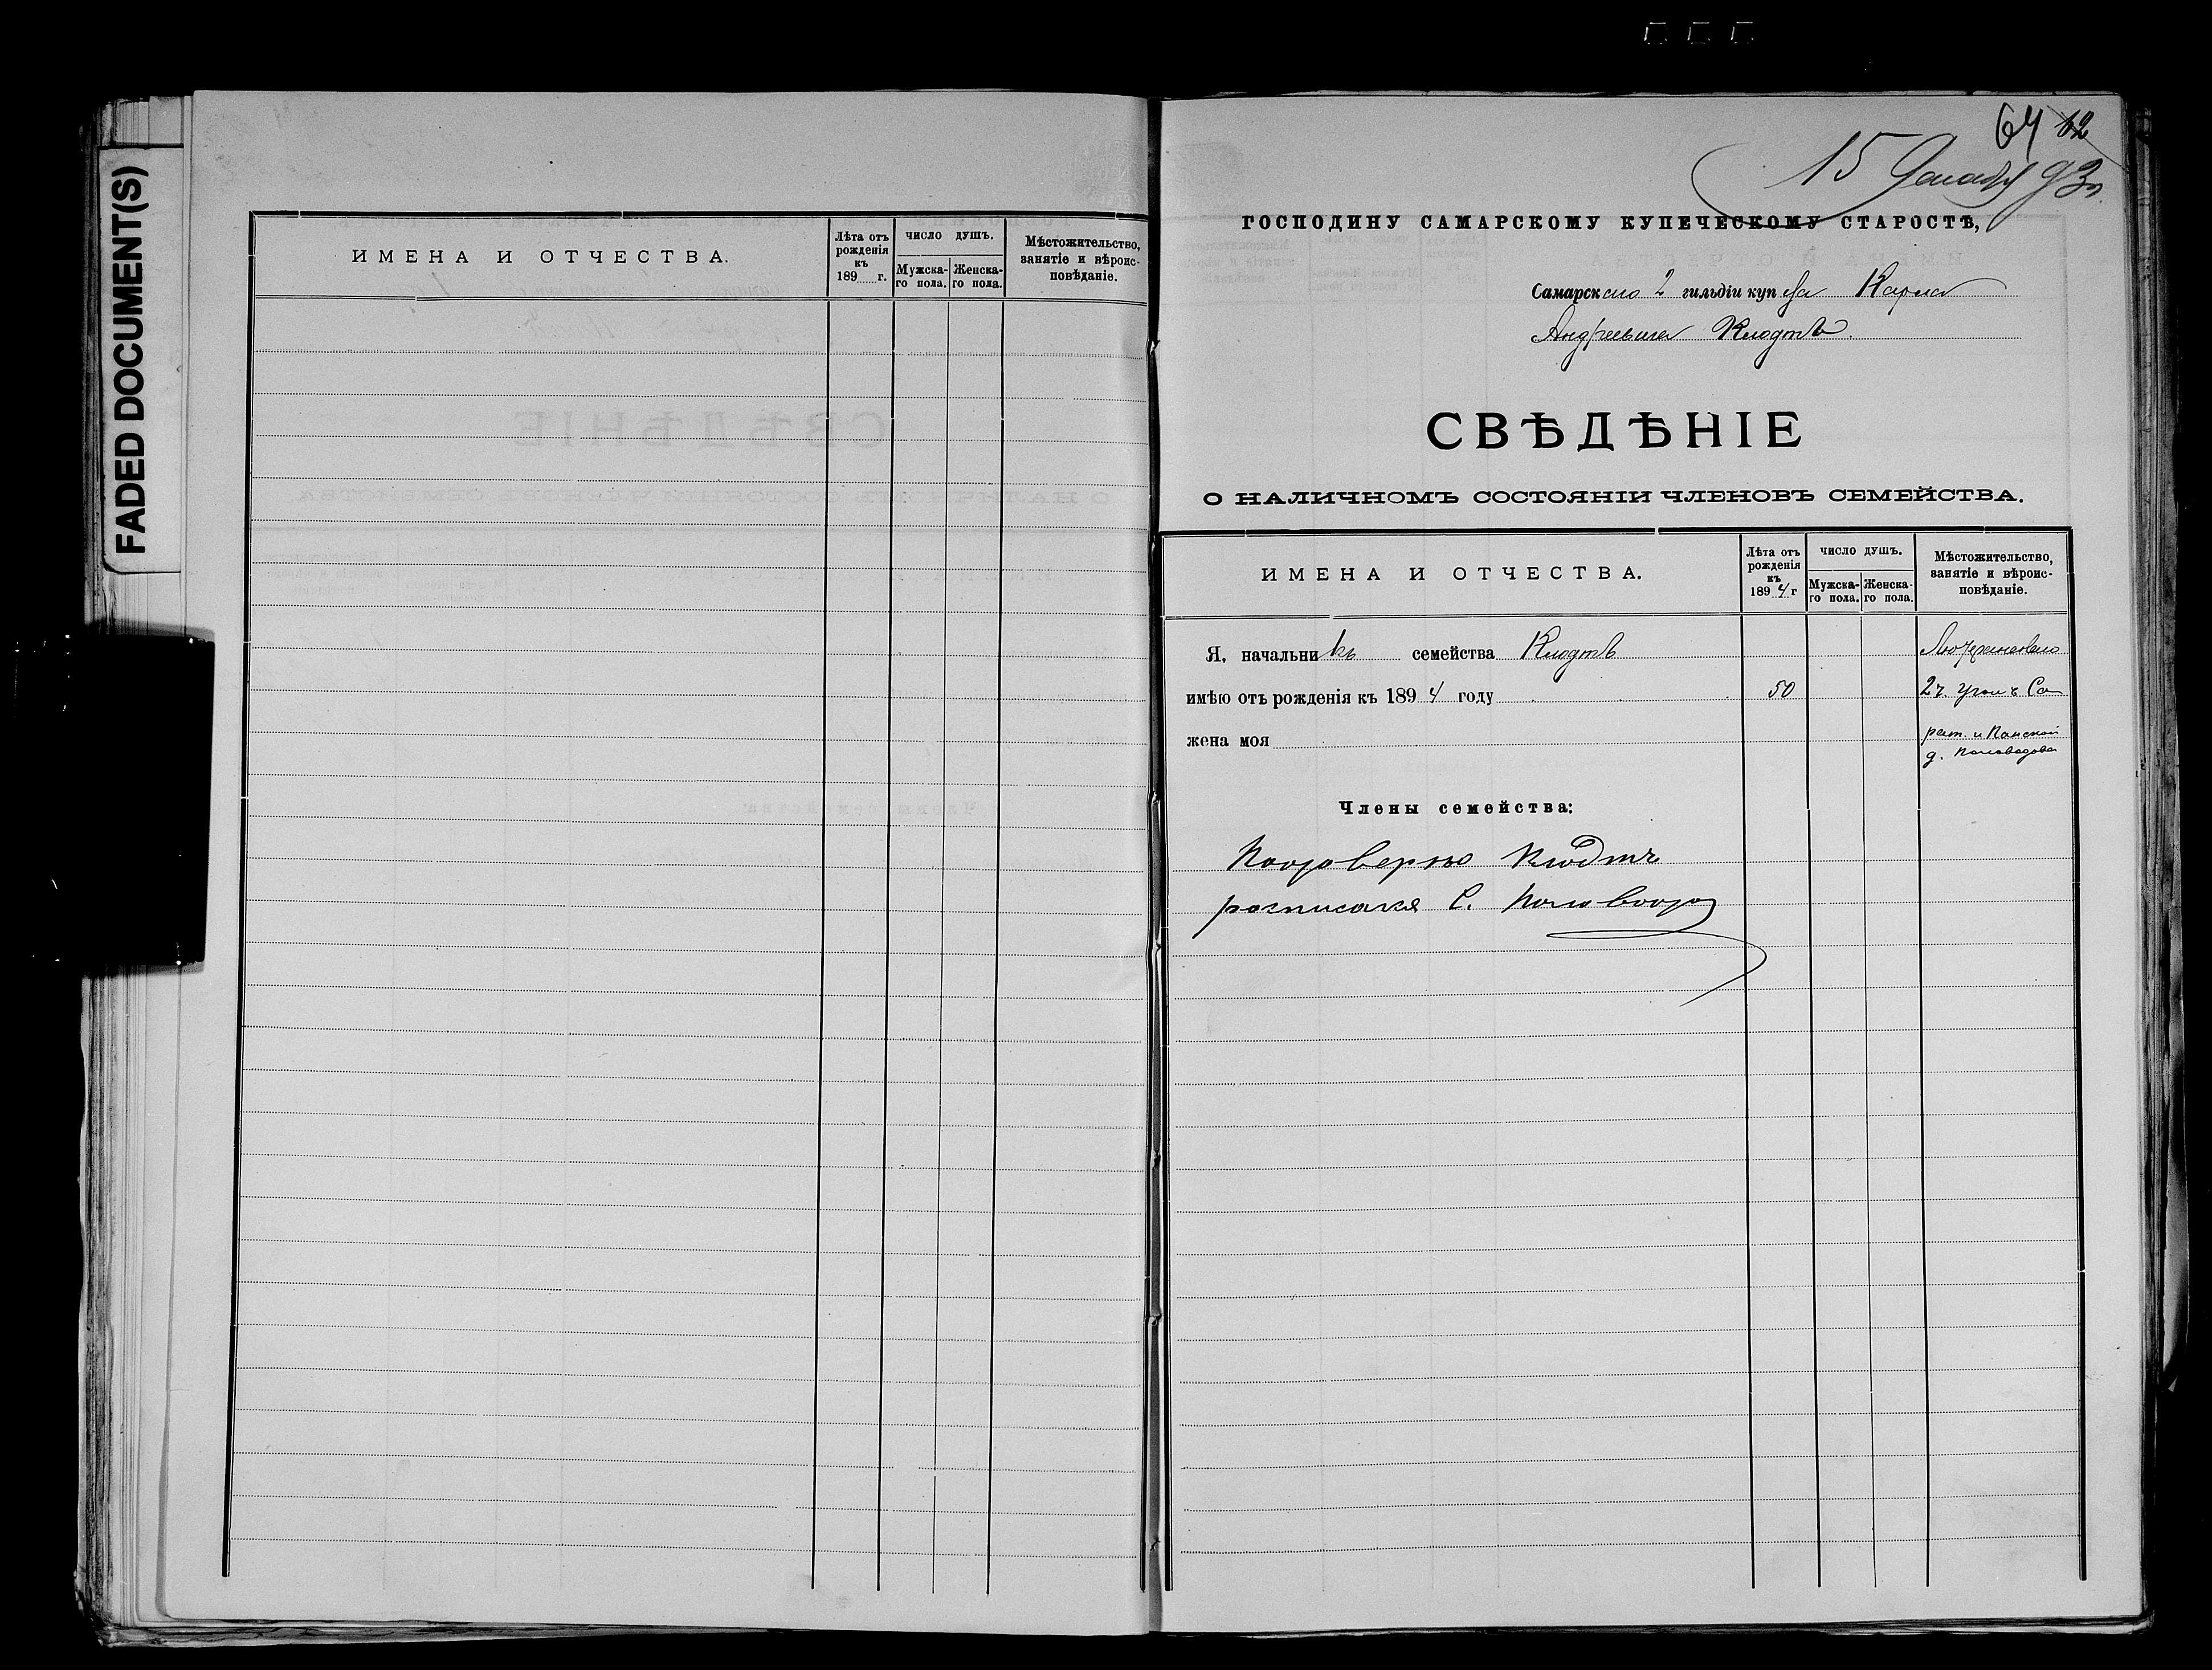 FADED DOCUMENT(S)
ИМЕНА И ОТЧЕСТВА.
Лѣта отъ рожденія къ 189 г.
ЧИСЛО ДУШЪ.
Мужска-го пола.
Женска-го пола.
Мѣстожительство, занятіе и вѣроис-повѣданіе.
64 62
15 Декабря 93 г.
ГОСПОДИНУ САМАРСКОМУ КУПЕЧЕСКОМУ СТАРОСТѢ,
Самарскаго 2 гильдіи купца Карла
Андреевича Клодтъ.
СВѢДѢНІЕ
О НАЛИЧНОМЪ СОСТОЯНІИ ЧЛЕНОВЪ СЕМЕЙСТВА.
ИМЕНА И ОТЧЕСТВА.
Лѣта отъ
рожденія
къ
1894 г
ЧИСЛО ДУШЪ.
Мужска-го пола.
Женска-го пола.
Мѣстожительство,
занятіе и вѣроис-
повѣданіе.
Я, начальникъ семейства Клодтъ
имѣю отъ рожденія къ 1894 году 50 2 ч. уголъ Са
жена моя
рат. и Панской
д.
Члены семейства:
Клодтъ
росписался С.